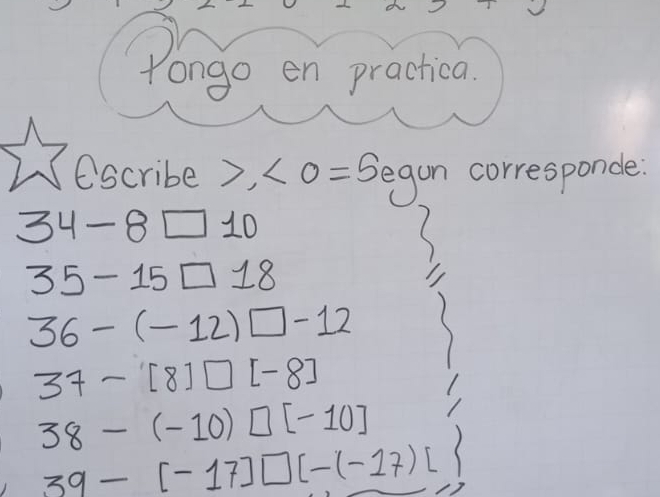 Pongo en practica.
Escribe >, < o = Segun corresponde:
34 - 8 □ 10
35 - 15 □ 18
36 - (- 12) □ - 12
37 - [8] □ [- 8]
38 - (- 10) □ [- 10]
39 - [- 17] □ [- (- 17) [